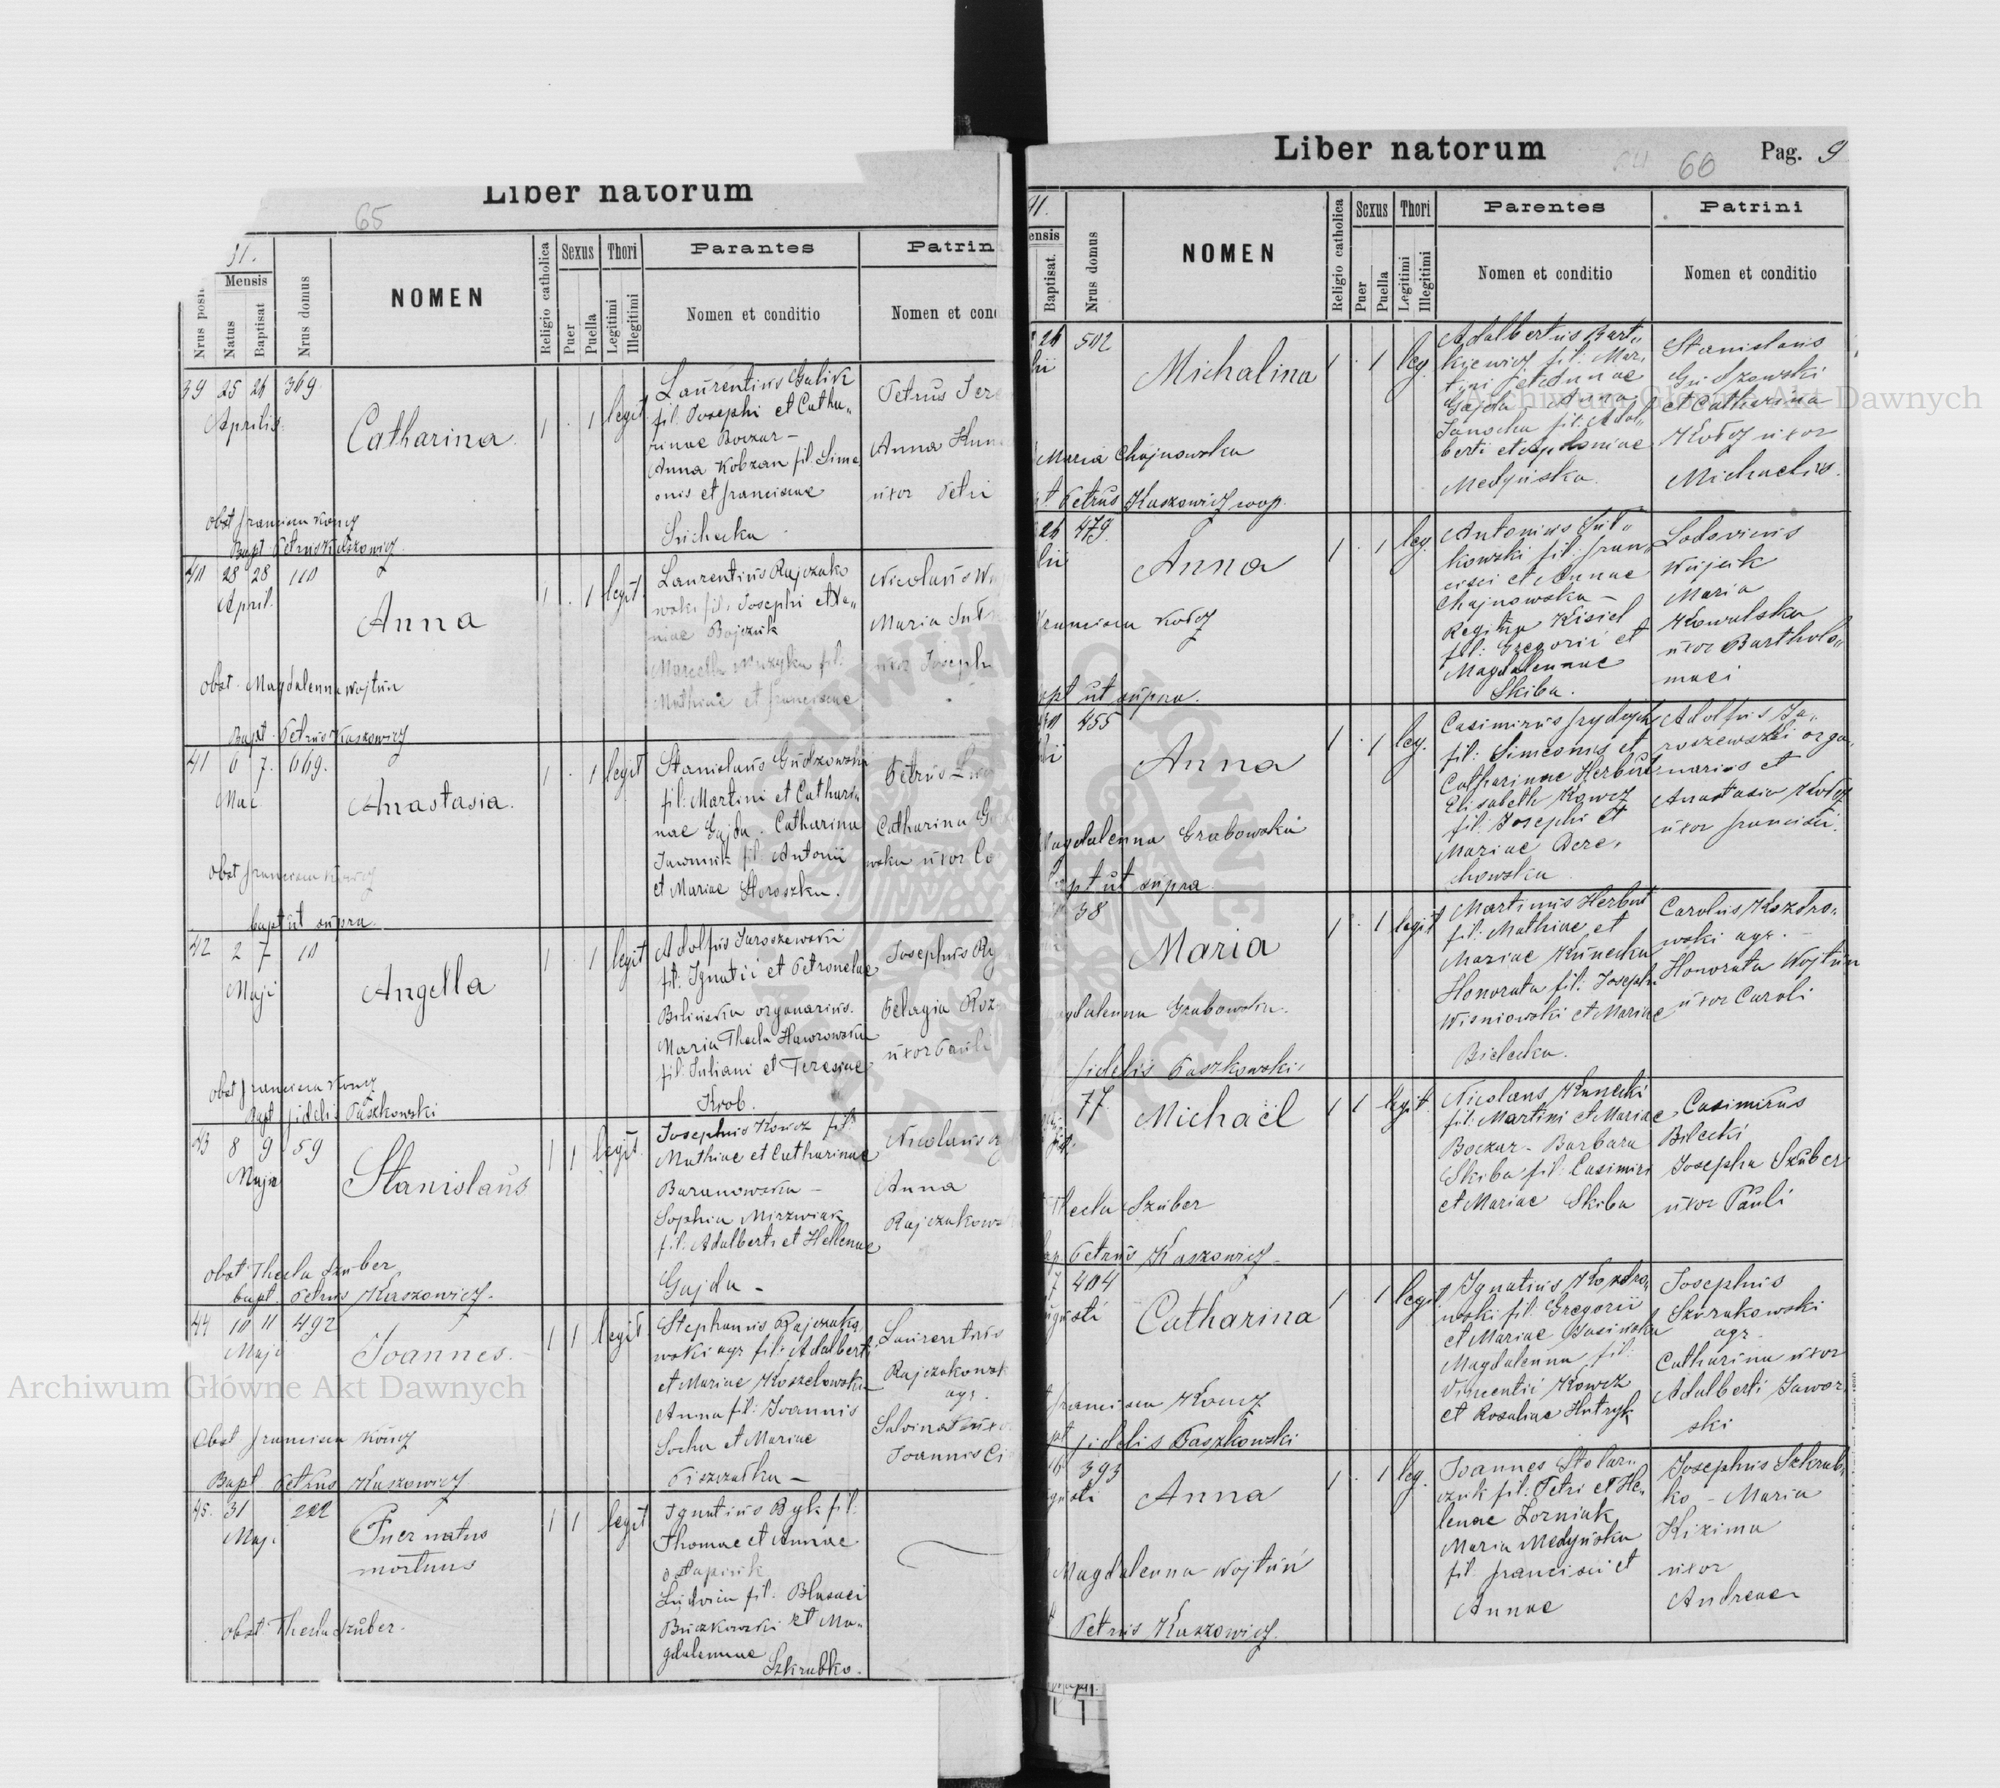 Liber natorum
65
31.
Nrus posit
Mensis
Natus
Baptisat
Nrus domus
NOMEN
Religio catholica
Sexus
Puer
Puella
Thori
Legitimi
Illegitimi
Parantes
Nomen et conditio
Patrin
Nomen et cond
39 25 26 369
Aprilis
Catharina
1 1 legit.
Laurentius Gulik
fil. Josephi et Catha„
rinae Boczar –
Anna Kobzan fil. Sime
onis et Franciscae
Sichecka
Petrus
Anna
uxor Petri
obst Francisca Koncz
Bapt. Petrus Kaszowicz
40 28 28 110
April.
Anna
1 1 legit.
Laurentius Rajczako
wski fil. Josephi et Xe„
niae Bojczuk
Marcella Muzyka fil.
Mathiae et Franciscae
Nicolaus
Maria
uxor Joseph
obst. Magdalenna Wojtun
Bapt. Petrus Kaszowicz
41 6 7. 669.
Mai
Anastasia.
1 1 legit
Stanislaus Gudzowski
fil. Martini et Cathari„
nae Gajda. Catharina
fil. Antonii
et Mariae Horoszka.
Petrus
Catharina
wska uxor
obst Francisca Koncz
bapt ut supra.
42 2 7 10
Maji
Angella
1 1 legit
Adolfus Jaroszewski
fil. Ignatii et Petronelae
Bilinska organarius.
Maria Thecla Hawrowska
fil. Juliani et Teresiae
Krob.
Josephus
Pelagia
uxor Pauli
obst Francisca Koncz
Bapt Fidelis Paszkowski
43 8 9 59
Maja
Stanislaus
1 1 legit.
Josephus Koncz fil.
Mathiae et Catharinae
Baranowska –
Sophia Mirzwiak
fil. Adalberti et Hellenae
Gajda –
Nicolaus
Anna
Rajczakows
obst Thecla Szuber
bapt. Petrus Kaszowicz.
44 10 11 492
Maji
Joannes.
1 1 legit
Stephanus Rajczako
wski agr. fil. Adalberti
et Mariae Koszelowska
Anna fil: Joannis
Socha et Mariae
Piszczatka –
Laurentius
Rajczakowsk
agr.
Joannis
Obst Francisca Koncz
Bapt Petrus Kaszowicz
45. 31 222
Maj.
Puer natus
mortuus
1 1 legit
Ignatius Byk fil.
Thomae et Annae
Ostapiuk
Ludvica fil. Blasaei
Buczkowski et Ma„
gdalennae
Szkrabko.
obst. Thecla Szuber.
Liber natorum
66
Pag. 9
ensis
Baptisat.
Nrus domus
NOMEN
Religio catholica
Sexus
Puer
Puella
Thori
Legitimi
Illegitimi
Parentes
Nomen et conditio
Patrini
Nomen et conditio
26 502
Michalina
1 1 leg.
Adalbertus Bart„
kiewicz fil: Mar„
tini et Annae
Gajda – Anna
Janocha fil. Adal„
berti et Apoloniae
Medynska
Stanislaus
Gudzowski
et Catharina
Kołcz uxor
Michaelis.
Maria Chajnowska
Petrus Kaszowicz coop.
26 479
Anna
1 1 leg.
Antonius
kowski fil: Fran„
cisci et Annae
Chajnowska –
Regina Kisiel
fil: Gregorii et
Magdalennae
Skiba.
Lodovicus
Wujcik
Maria
Kowalska
uxor Bartholo„
maei
Francisca Kołcz
bapt ut supra.
455
Anna
1 1 leg.
Casimirus Frydryk
fil: Simeonis et
Catharinae Herbut
Elisabeth Koncz
fil: Josephi et
Mariae Dere„
chowska
Adolfus Ja„
roszewski orga„
narius et
Anastasia Kołcz
uxor Francisci.
Magdalenna Grabowska
bapt ut supra
38
Maria
1 1 legit
Martinus Herbut
fil: Mathiae et
Mariae Kunecka
Honorata fil: Josephi
Wisniowski et Mariae
Bielecka.
Carolus Kozdro„
wski agr. –
Honorata Wojtun
uxor Caroli
gdalenna Grabowska.
Fidelis Paszkowski.
77
Michaël
1 1 legit.
Nicolaus Kunecki
fil: Martini et Mariae
Boczar – Barbara
Skiba fil: Casimiri
et Mariae Skiba
Casimirus
Bilecki
Josepha Szuber
uxor Pauli
Thecla Szuber
bap. Petrus Kaszowicz –
7 404
gusti
Catharina
1 1 legit
Ignatius Kozdro„
wski fil. Gregorii
et Mariae Jasinska
Magdalenna fil:
Vincentii Koncz
et Rosaliae Hutryk
Josephus
Szurakowski
agr.
Catharina uxor
Adalberti Jawor„
ski
Francisca Koncz
Fidelis Paszkowski
16 393
gusti
Anna
1 1 leg.
Joannes Stolar„
czuk fil. Petri et He„
lenae Zorniak
Maria Medynska
fil. Francisci et
Annae
Josephus Szkrab„
ko – Maria
Kizima
uxor
Andreae
Magdalenna Wojtun
Petrus Kaszowicz.
Archiwum Główne Akt Dawnych
Archiwum Główne Akt Dawnych